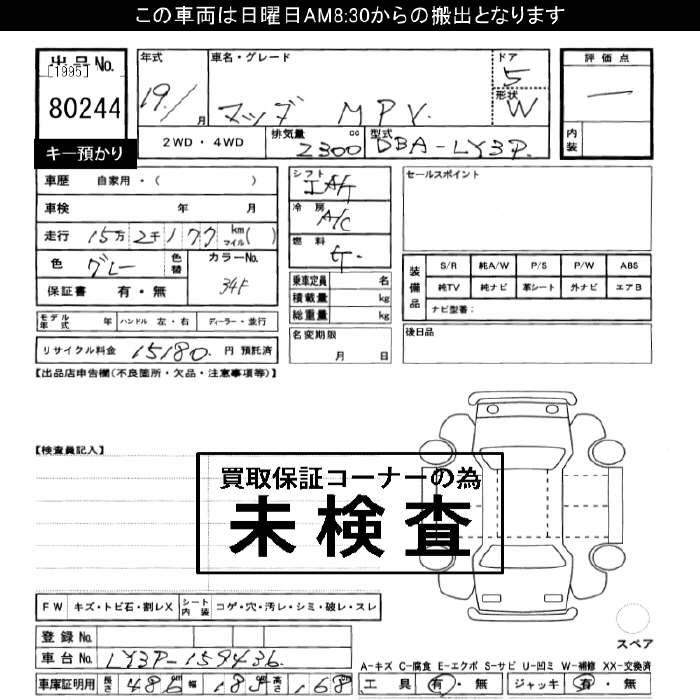 この車両は日曜日AM8:30からの搬出となります
出品No.
[1995]
80244
キー預かり
年式
19/1月
車名・グレード
マツダ MPV.
ドア
5
形状
W
2WD・4WD
排気量 cc
2300
型式
DBA-LY3P
評価点
一
内装
車歴 自家用・( )
車検 年 月
走行 15万 2千 177 km マイル( )
色 グレー 色替
カラーNo.
34K
保証書 有・無
モデル年式 年 ハンドル 左・右 ディーラー・並行
リサイクル料金 15180. 円 預託済
シフト
IAT
冷房
A/C
燃料
ガ.
乗車定員 名
積載量 kg
総重量 kg
名変期限
月 日
セールスポイント
装備品
S/R 純A/W P/S P/W ABS
純TV 純ナビ 革シート 外ナビ エアB
ナビ型番:
後日品
【出品店申告欄(不良箇所・欠品・注意事項等)】
【検査員記入】
買取保証コーナーの為
未検査
FW キズ・トビ石・割レX シート内装 コゲ・穴・汚レ・シミ・破レ・スレ
登録No.
車台No. LY3P-159436
車庫証明用 長さ 486 幅 185 高さ 168
スペア
A-キズ C-腐食 E-エクボ S-サビ U-凹ミ W-補修 XX-交換済
工具 有・無 ジャッキ 有・無